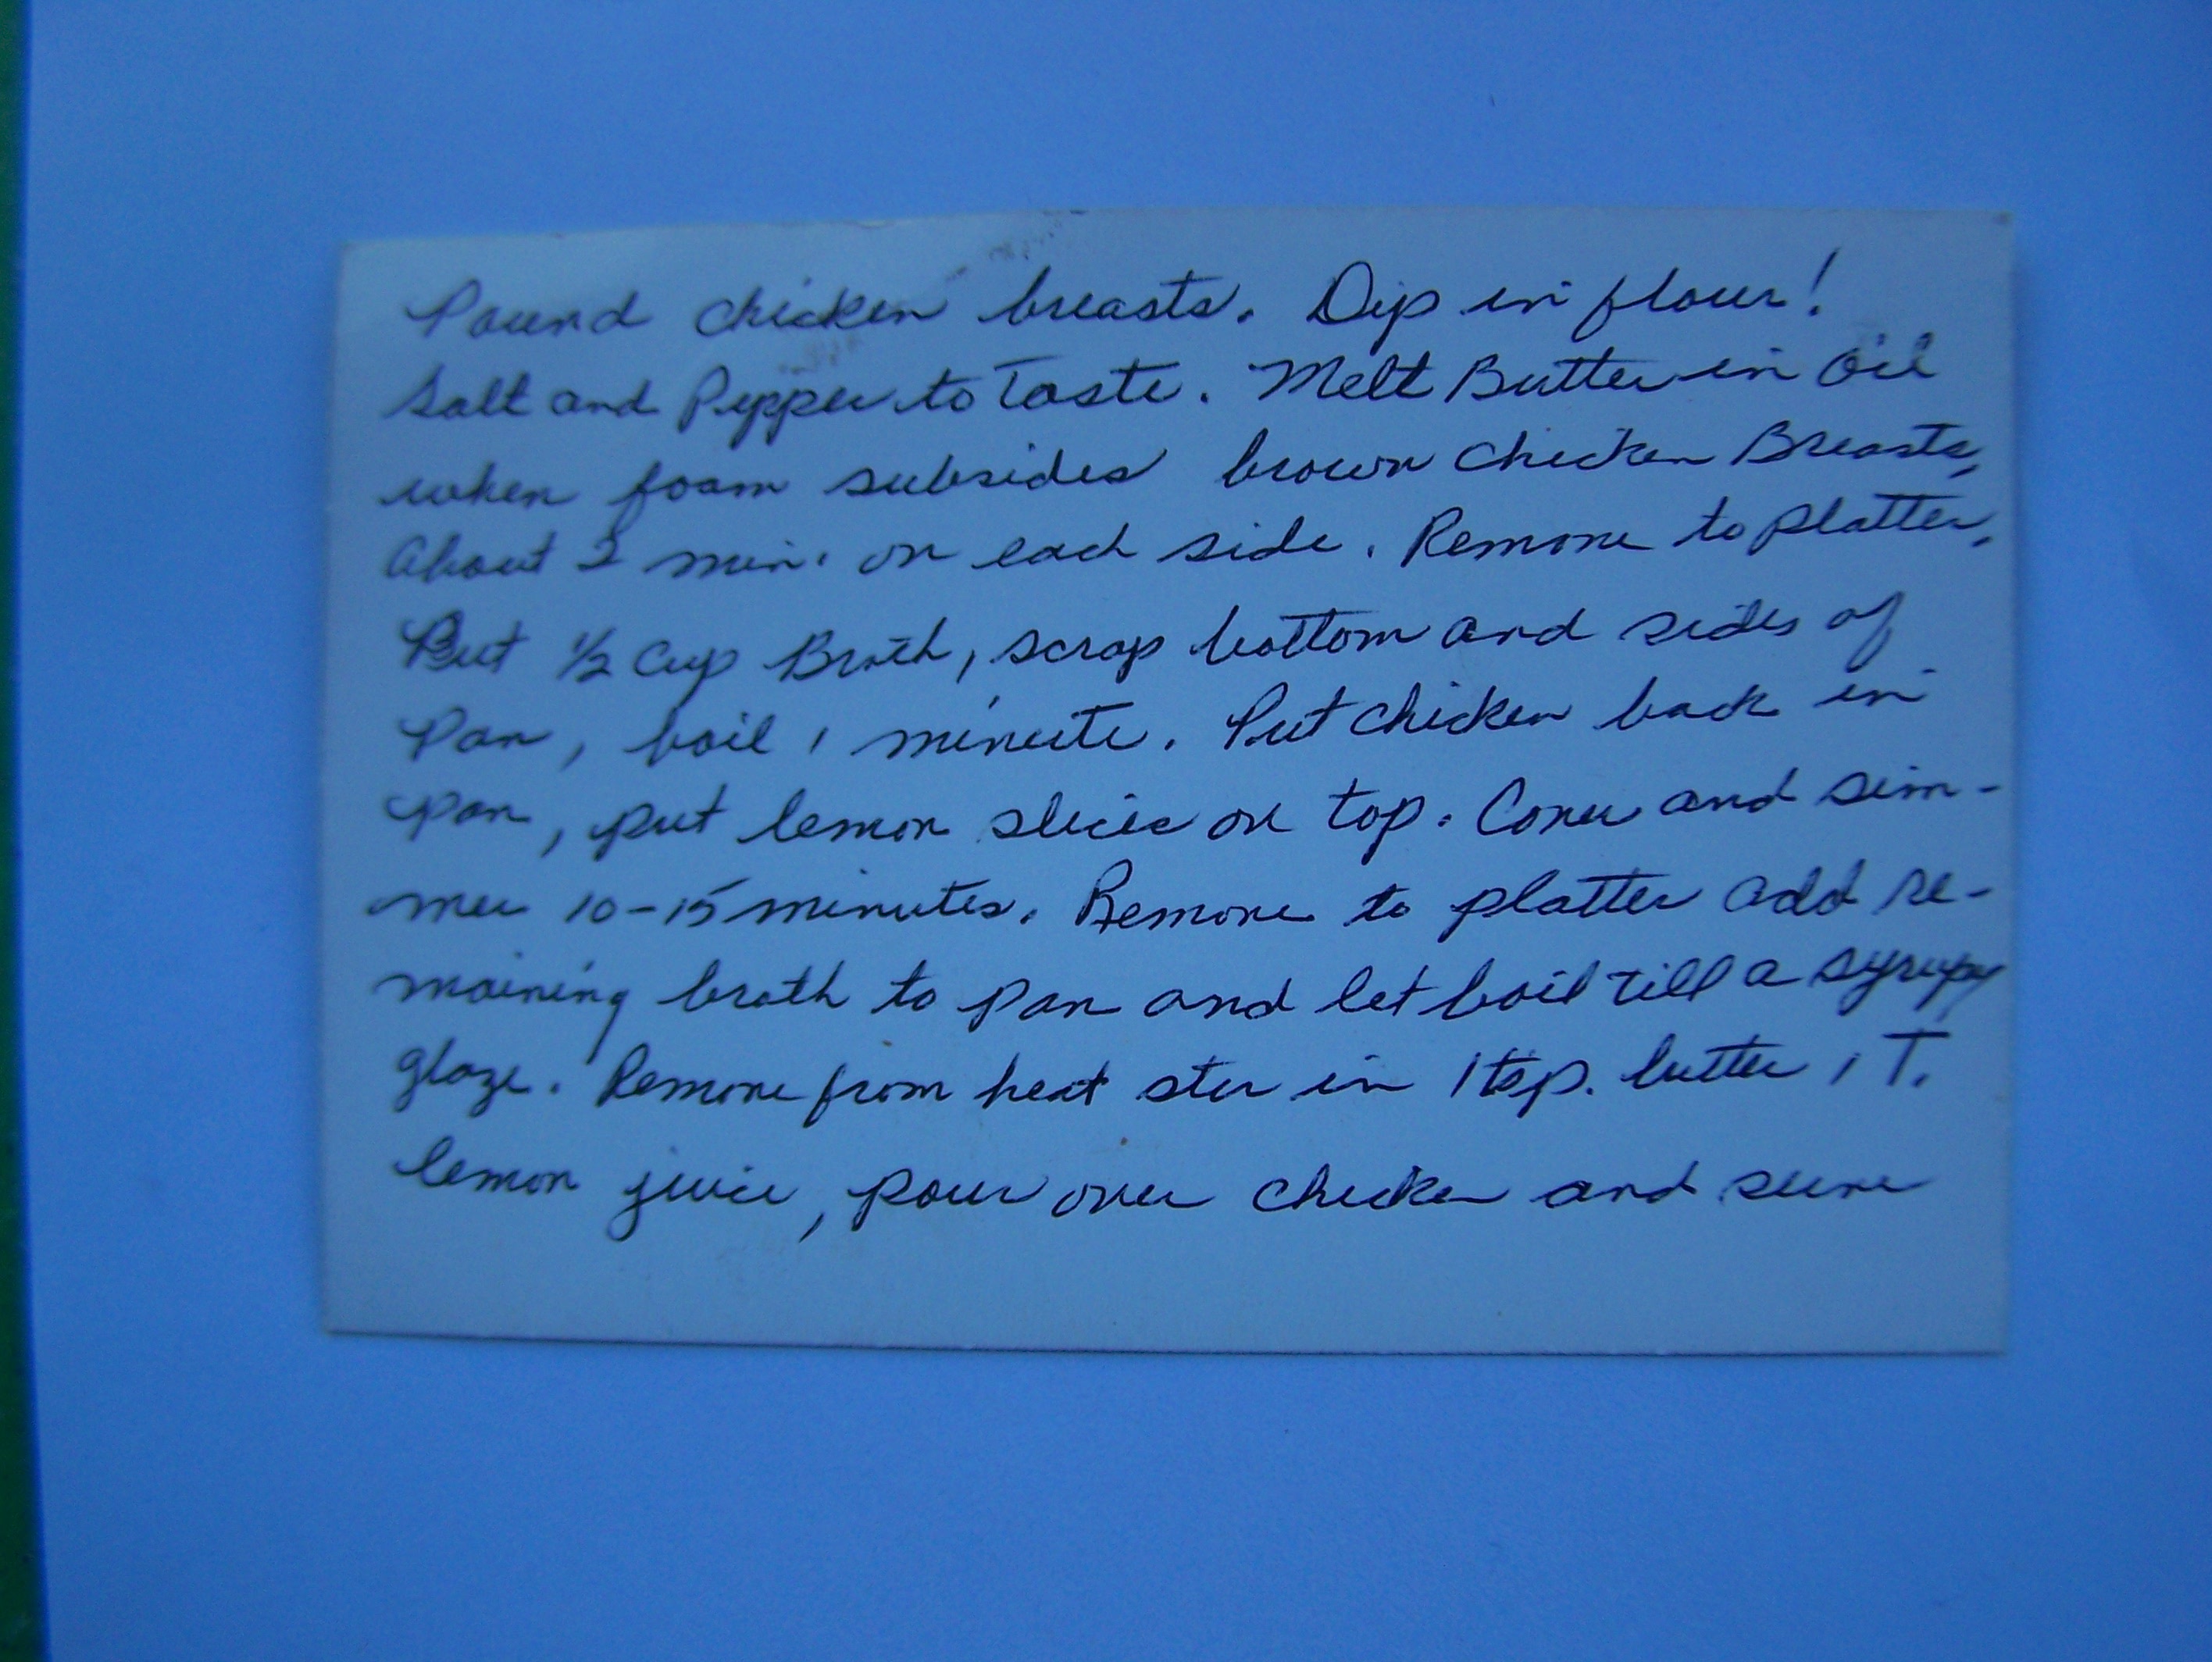 Pound chicken breasts. Dip in flour!
Salt and Pepper to Taste. Melt Butter in Oil
when foam subsides brown Chicken Breasts,
About 2 min. on each side. Remove to platter,
Put 1/2 Cup Broth, scrap bottom and sides of
Pan, boil 1 minute. Put chicken back in
pan, put lemon slices on top. Cover and sim-
mer 10-15 minutes. Remove to platter add re-
maining broth to pan and let boil till a syrupy
glaze. Remove from heat stir in 1 tsp. butter 1 T.
lemon juice, pour over chicken and serve